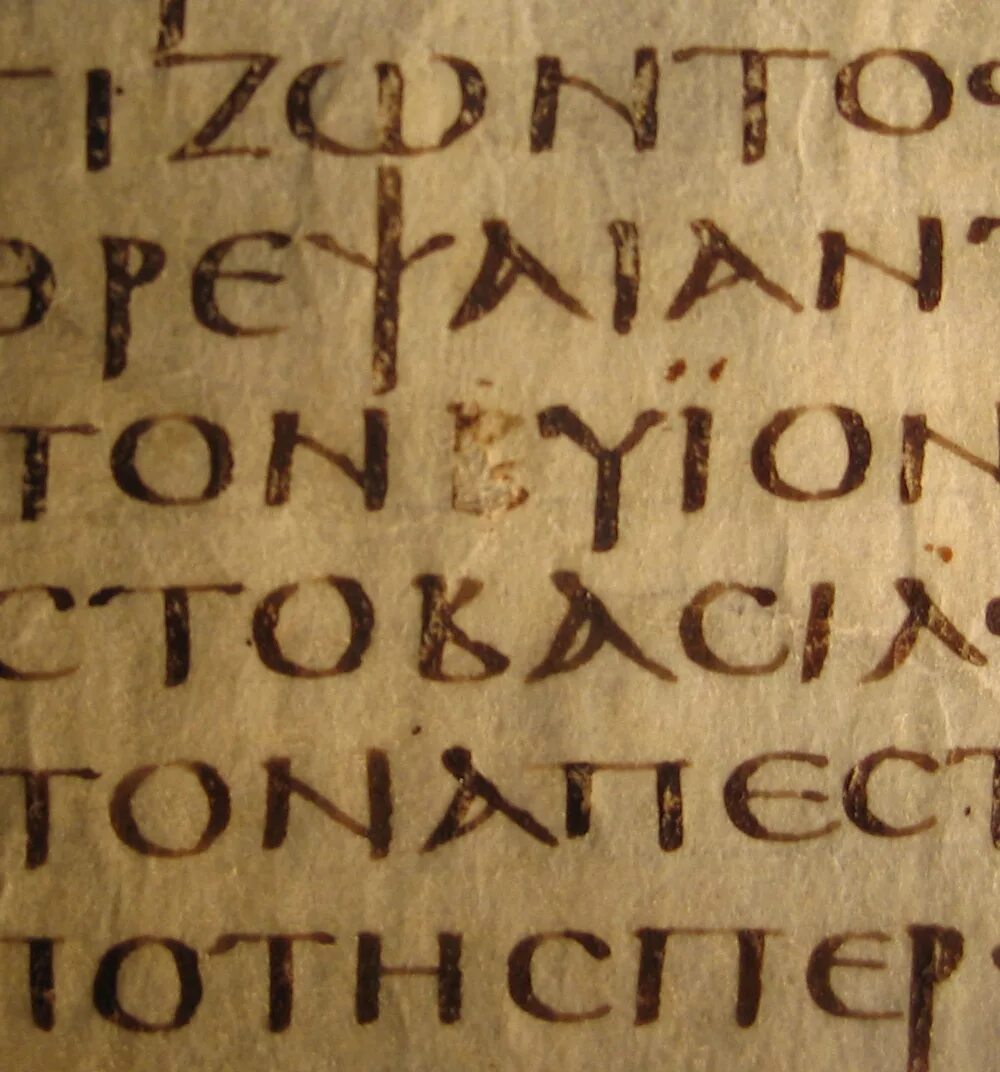 ΤΙΖΩΝΤΟ
ΘΡΕΨΑΙΑΝΤ
ΤΟΝ ΥΪΟΝ
ϹΤΟΒΑϹΙΛ
ΤΟΝΑΠΕϹΤ
ΠΟΤΗϹΠΕΡ